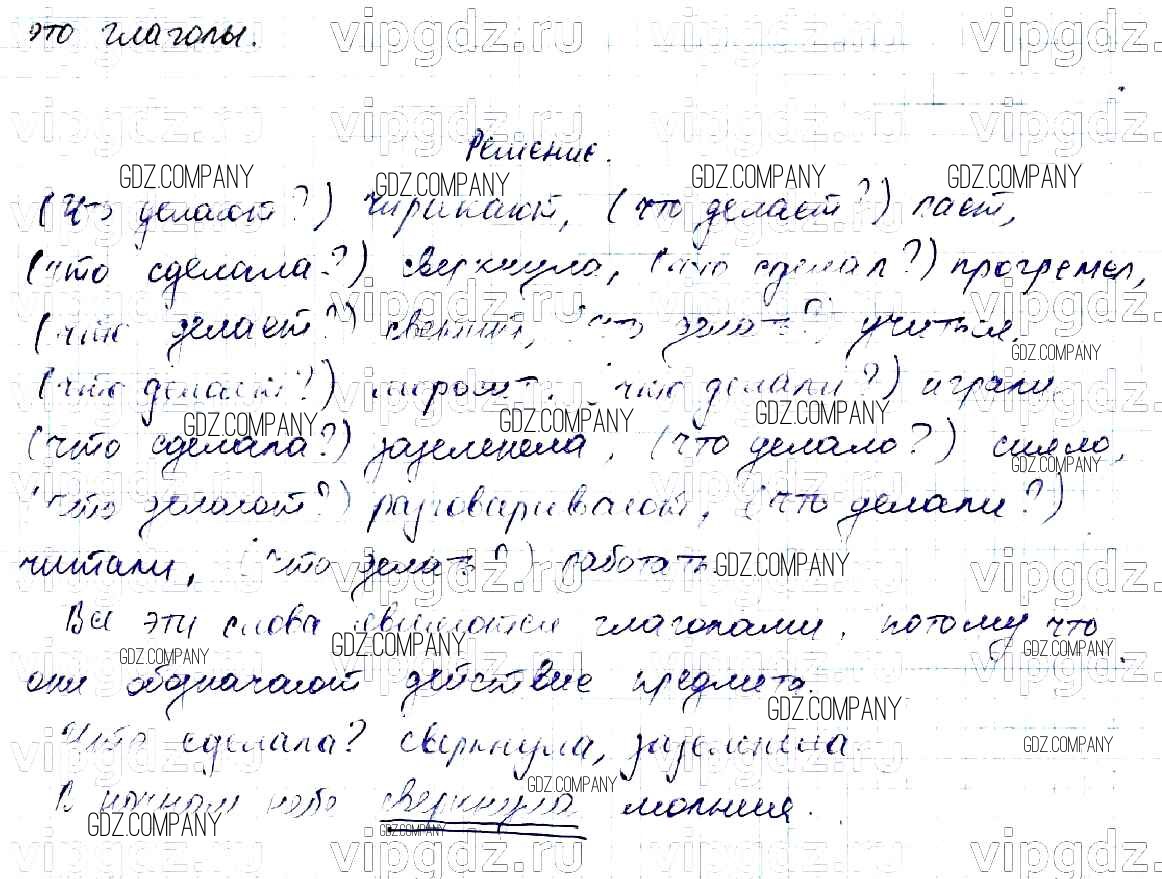 это глаголы.
Решение.
(Что делают?) чирикают, (что делает?) лает,
(что сделала?) сверкнула, (что сделал?) прогремел,
(что делает?) светит, (что делать?) учиться,
(что делает?) морозит, (что делали?) играли,
(что сделала?) зазеленела, (что делало?) сияло,
(что делают?) разговаривают, (что делали?)
читали, (что делать?) работать.
Все эти слова являются глаголами, потому что
они обозначают действие предмета.
Что сделала? сверкнула, зазеленела
В ночном небе сверкнула молния.
vipgdz.ru
GDZ.COMPANY